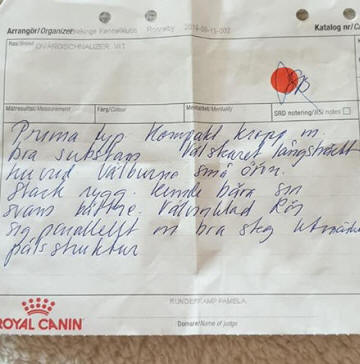 Arrangör/Organizer Blekinge Kennelklubb Ronneby 2019-06-15-002 Katalog nr/Ca
Ras/Breed
DVÄRGSCHNAUZER, VIT
Mätresultat/Measurement Färg/Colour Mentalitet/Mentality SRD notering/RSI notes
Prima typ Kompakt kropp m.
bra substans Välskuret långsträckt
huvud Välburna små öron.
Stark rygg. Kunde bära sin
svans bättre. Välvinklad Rör
sig parallellt m bra steg Utmärkt
pälsstruktur
ROYAL CANIN
RUNDERKAMP PAMELA
Domare/Name of judge